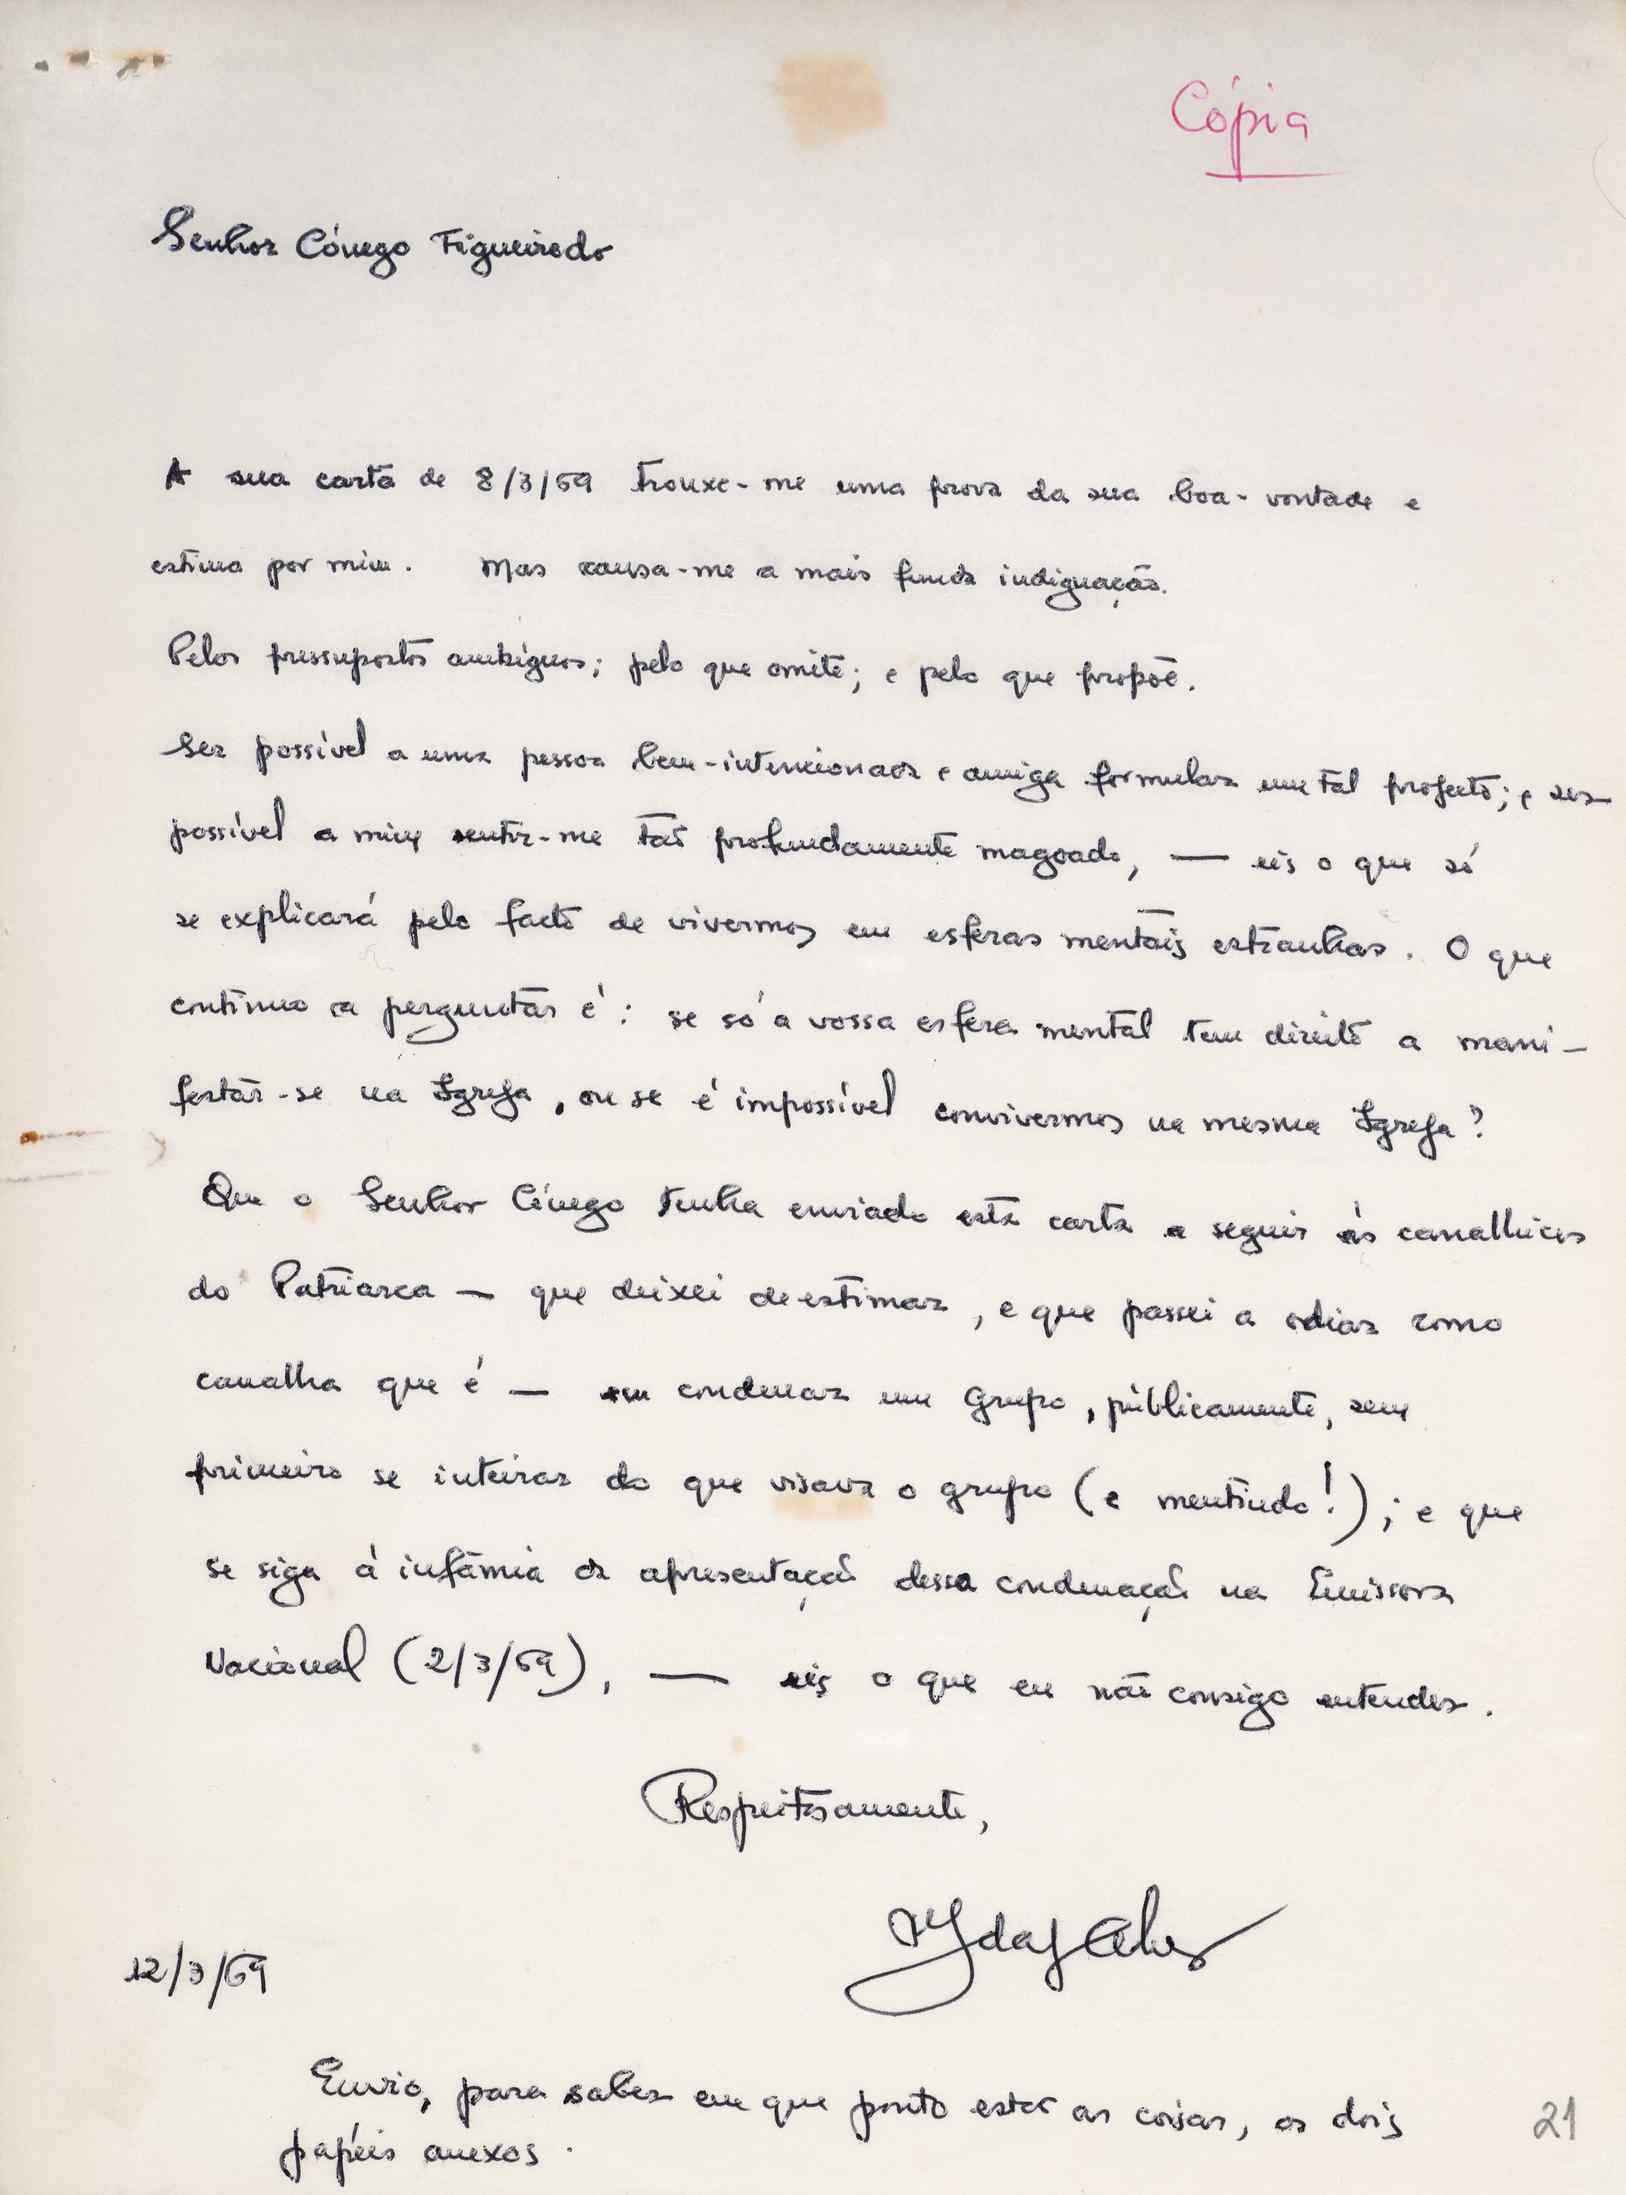 Cópia
Senhor Cónego Figueiredo
A sua carta de 8/3/69 trouxe-me uma prova da sua boa-vontade e
estima por mim. Mas causa-me a mais funda indignação.
Pelos pressupostos ambíguos; pelo que omite; e pelo que propõe.
Ser possível a uma pessoa bem-intencionada e amiga formular um tal projecto; e ser
possível a mim sentir-me tão profundamente magoado, — eis o que só
se explicará pelo facto de vivermos em esferas mentais estranhas. O que
continuo a perguntar é: se só a vossa esfera mental tem direito a mani-
festar-se na Igreja, ou se é impossível convivermos na mesma Igreja?
Que o Senhor Cónego tenha enviado esta carta a seguir às canalhices
do Patriarca — que deixei de estimar, e que passei a odiar como
canalha que é — em condenar um grupo, públicamente, sem
primeiro se inteirar do que visava o grupo (e mentindo!); e que
se siga à infâmia da apresentação dessa condenação na Emissora
Nacional (2/3/69), — eis o que eu não consigo entender.
Respeitosamente,
12/3/69
Envio, para saber em que ponto estão as coisas, os dois
papéis anexos.
21